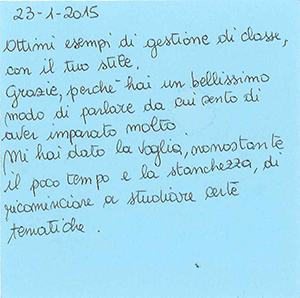 23-1-2015
Ottimi esempi di gestione di classe,
con il tuo stile.
Grazie, perchè hai un bellissimo
modo di parlare da cui sento di
aver imparato molto.
Mi hai dato la voglia, nonostante
il poco tempo e la stanchezza, di
ricominciare a studiare certe
tematiche.